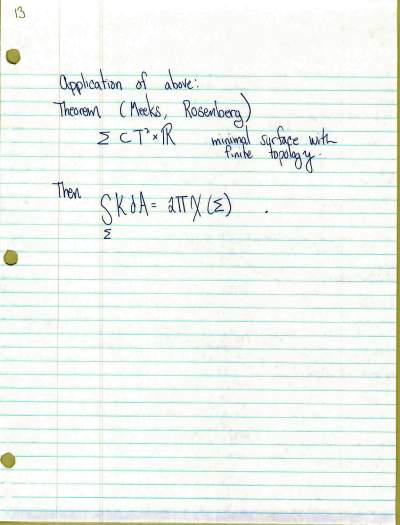 13
Application of above:
Theorem (Meeks, Rosenberg)
Σ ⊂ T² × ℝ minimal surface with
finite topology.
Then
∫_Σ K dA = 2πχ(Σ) .